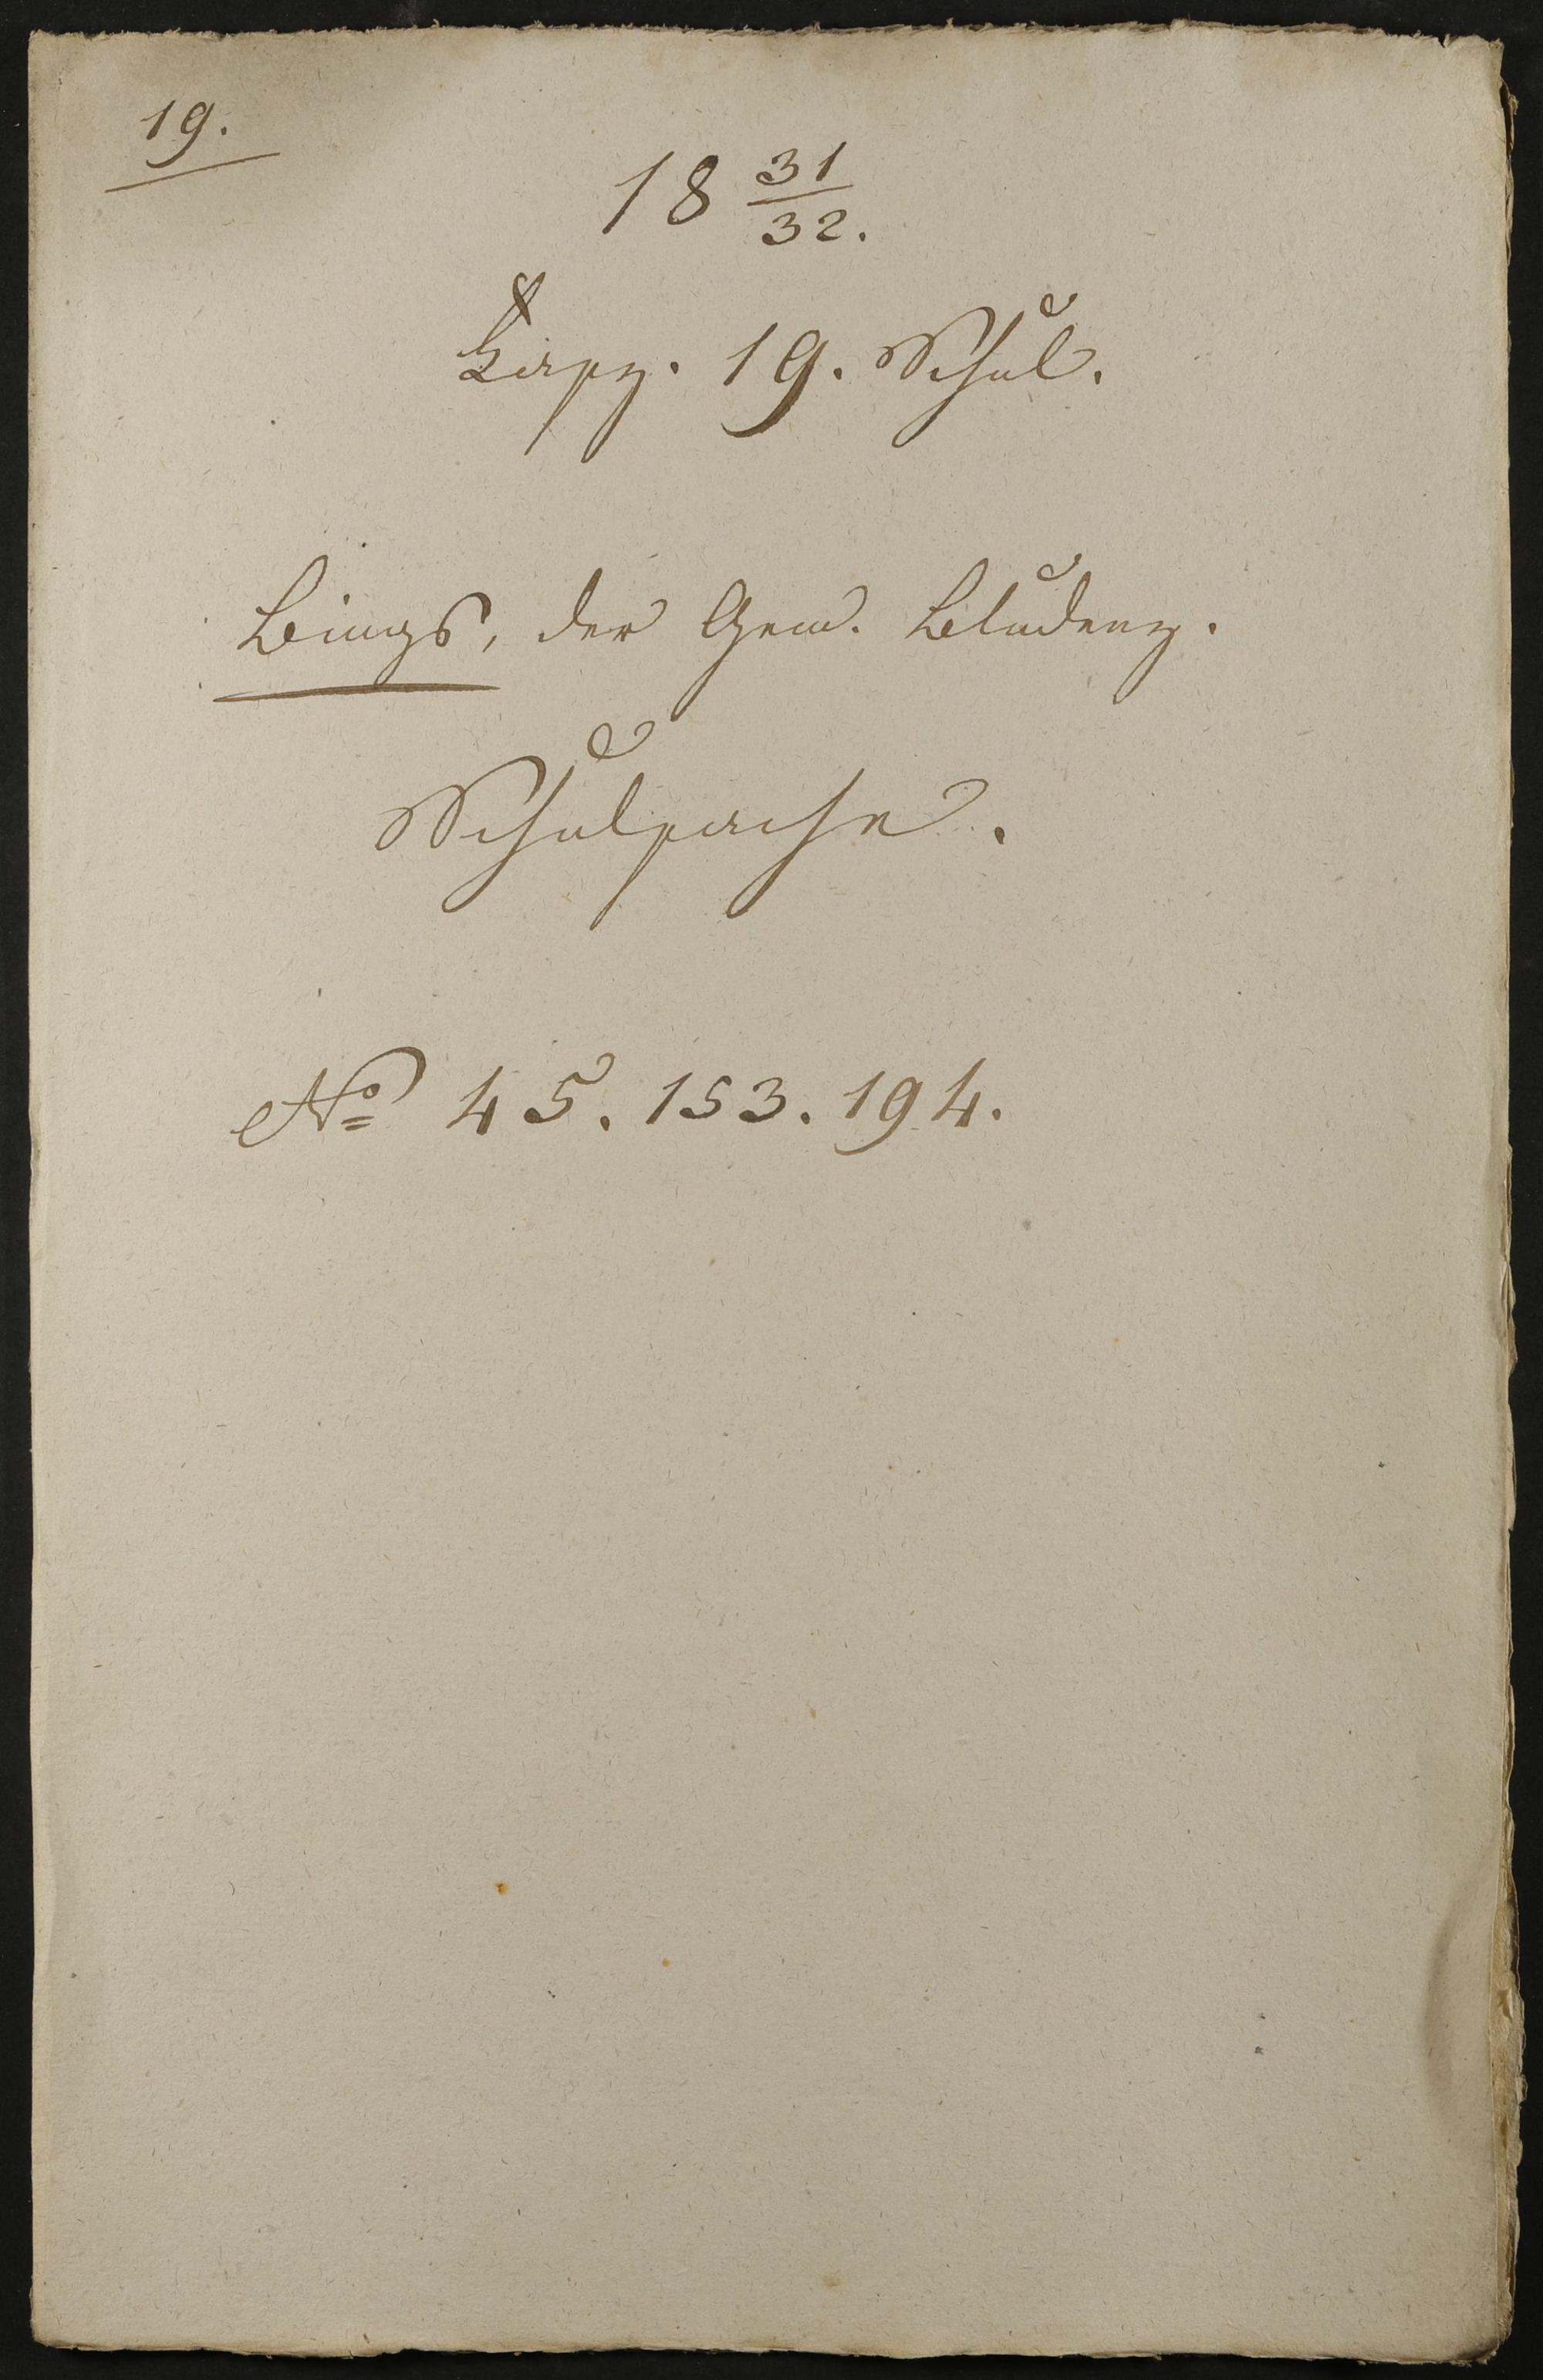 19.
18 31/32.
Fasz. 19. Schul.
Bings, der Gem. Bludenz.
Schulsache.
No 45. 153. 194.